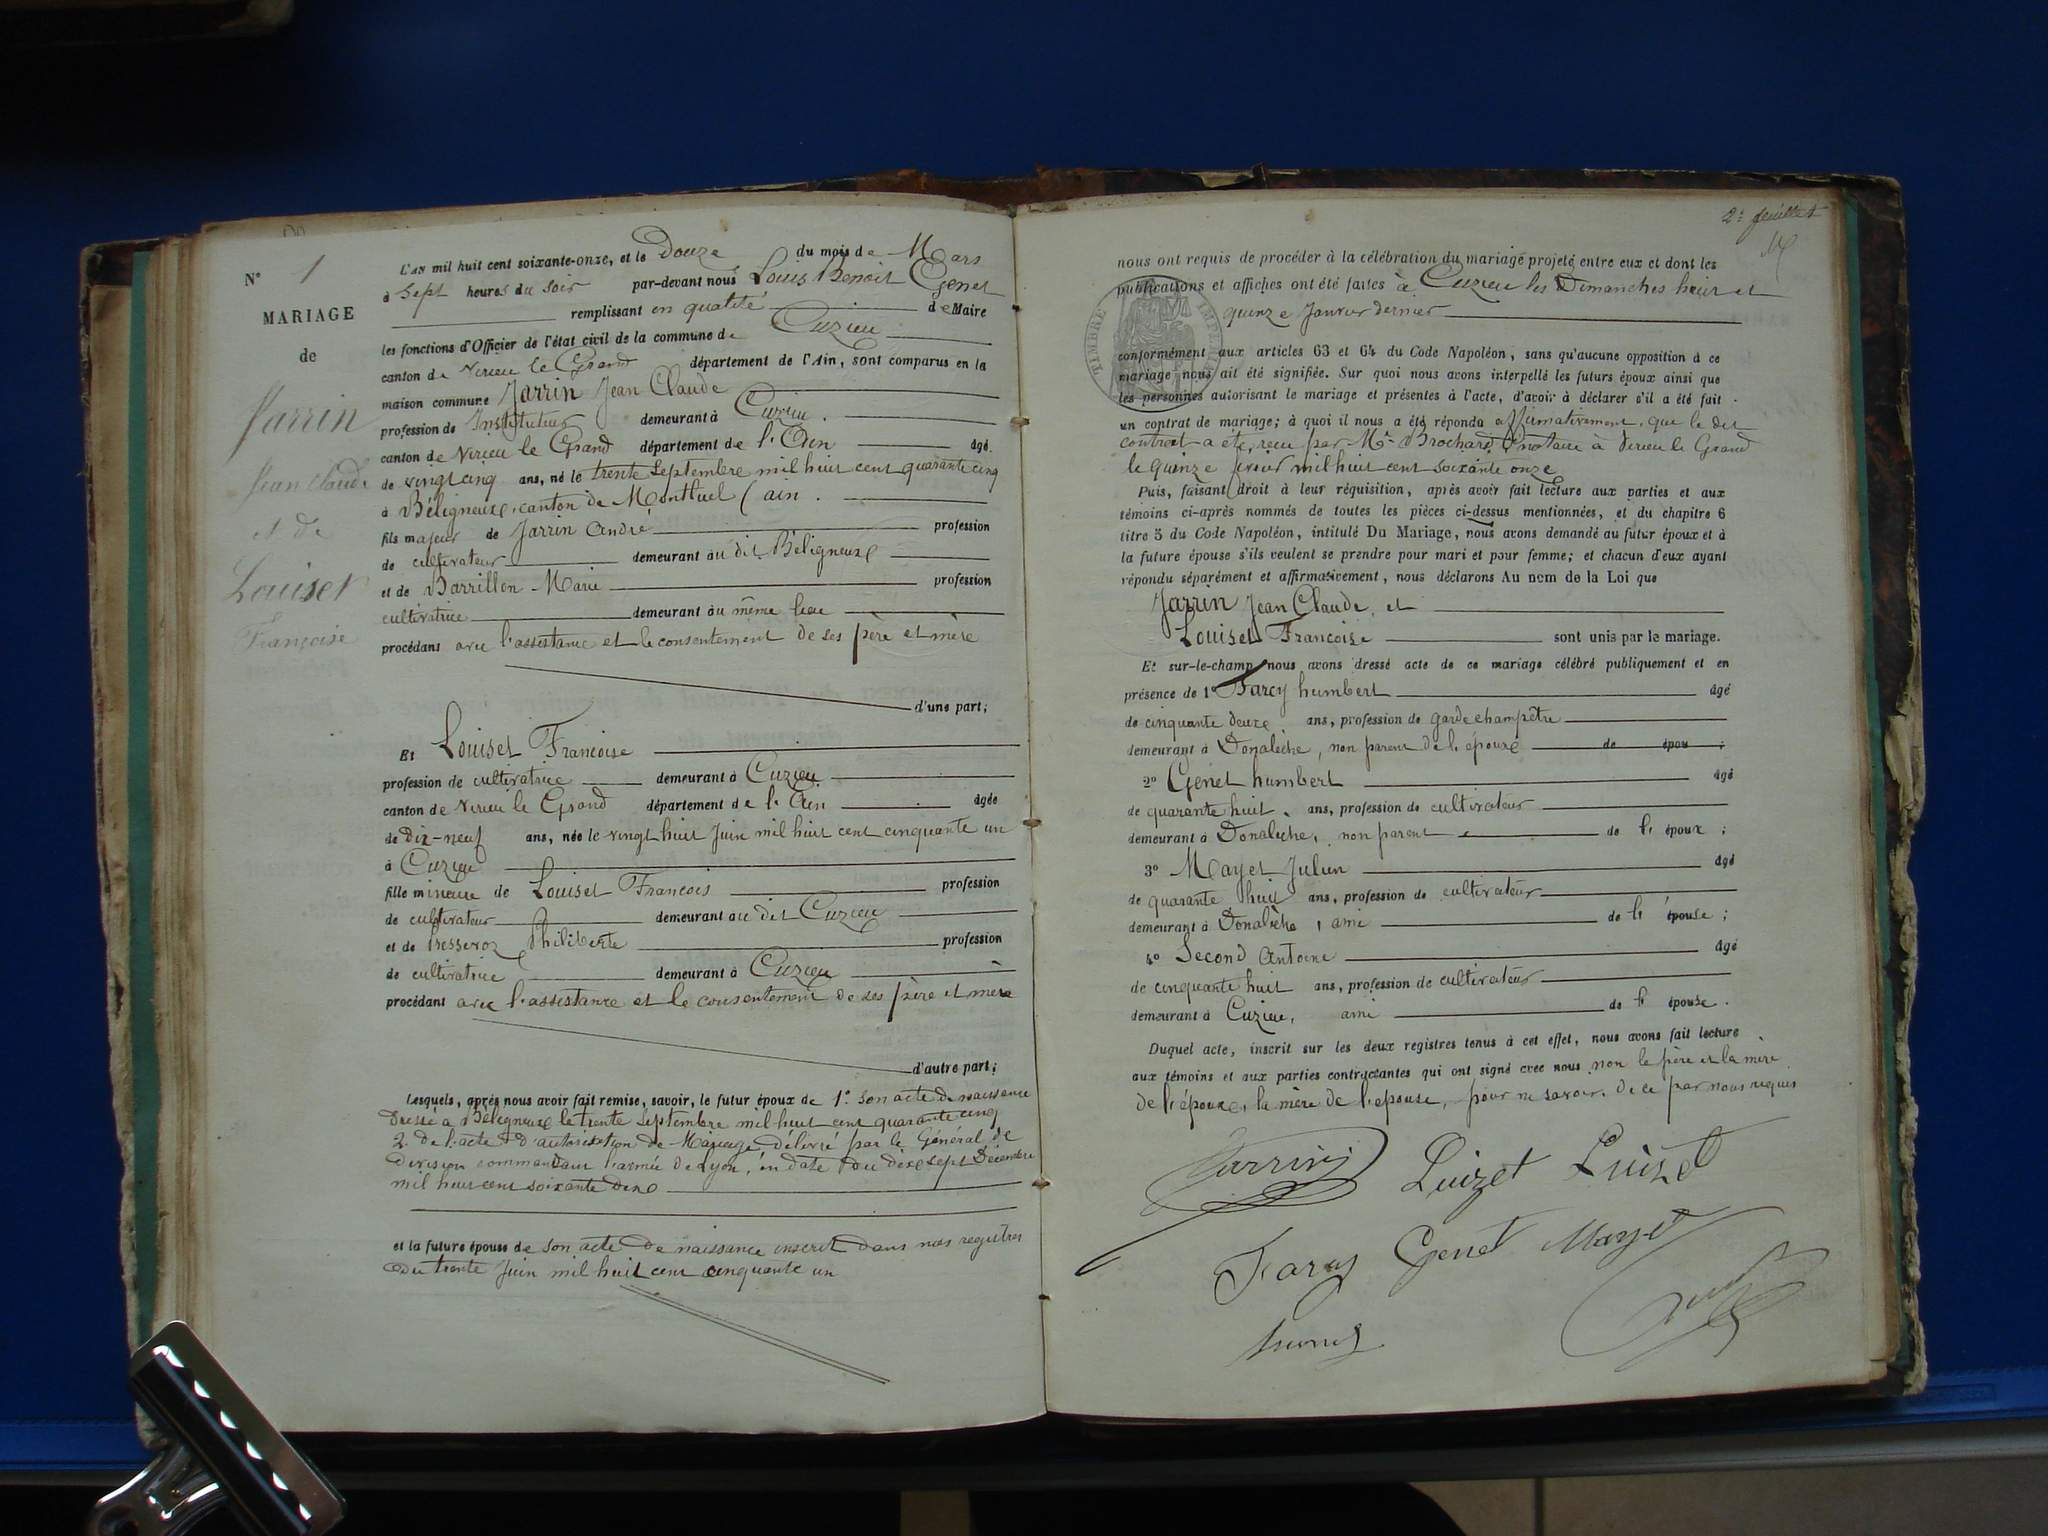 N° 1
MARIAGE
de
Jarrin
Jean Claude
et de
Louiset
Françoise
L'an mil huit cent soixante-onze, et le Douze du mois de Mars
à Sept heures du soir par-devant nous Louis Benoit Genet
remplissant en qualité de Maire
les fonctions d'Officier de l'état civil de la commune de Cuzieu
canton de Virieu le Grand département de l'Ain, sont comparus en la
maison commune Jarrin Jean Claude
profession de Instituteur demeurant à Cuzieu.
canton de Virieu le Grand département de l'Ain âgé
de vingt cinq ans, né le trente Septembre mil huit cent quarante cinq
à Béligneux, canton de Montluel (ain.
fils majeur de Jarrin André profession
de cultivateur demeurant au dit Béligneux
et de Barrillon Marie profession
cultivatrice demeurant au même lieu
procédant avec l'assistance et le consentement de ses père et mère
d'une part;
Et Louiset Françoise
profession de cultivatrice demeurant à Cuzieu
canton de Virieu le Grand département de l'Ain âgée
de Dix-neuf ans, née le vingt huit Juin mil huit cent cinquante un
à Cuzieu
fille mineure de Louiset François profession
de cultivateur demeurant au dit Cuzieu
et de Philiberte profession
de cultivatrice demeurant à Cuzieu
procédant avec l'assistance et le consentement de ses père et mère
d'autre part;
Lesquels, après nous avoir fait remise, savoir, le futur époux de 1° son acte de naissance
Dressé à Béligneux le trente Septembre mil huit cent quarante cinq
2. De l'acte d'autorisation de Mariage délivré par le Général de
Division commandant l'armée de Lyon, en date du dix sept Décembre
mil huit cent soixante dix
et la future épouse de son acte de naissance inscrit dans nos registres
du trente Juin mil huit cent cinquante un
2e feuillet
nous ont requis de procéder à la célébration du mariage projeté entre eux et dont les
publications et affiches ont été faites à Cuzieu les Dimanches huit et
quinze Janvier dernier
TIMBRE IMPERIAL
conformément aux articles 63 et 64 du Code Napoléon, sans qu'aucune opposition à ce
mariage nous ait été signifiée. Sur quoi nous avons interpellé les futurs époux ainsi que
les personnes autorisant le mariage et présentes à l'acte, d'avoir à déclarer s'il a été fait
un contrat de mariage; à quoi il nous a été répondu affirmativement, que le dit
contrat a été reçu par Me Brochard, notaire à Virieu le Grand
le Quinze février mil huit cent soixante onze
Puis, faisant droit à leur réquisition, après avoir fait lecture aux parties et aux
témoins ci-après nommés de toutes les pièces ci-dessus mentionnées, et du chapitre 6
titre 5 du Code Napoléon, intitulé Du Mariage, nous avons demandé au futur époux et à
la future épouse s'ils veulent se prendre pour mari et pour femme; et chacun d'eux ayant
répondu séparément et affirmativement, nous déclarons Au nom de la Loi que
Jarrin Jean Claude et
Louiset Francoise sont unis par le mariage.
Et sur-le-champ nous avons dressé acte de ce mariage célébré publiquement et en
présence de 1° Farcy humbert âgé
de cinquante deuxe ans, profession de garde champêtre
demeurant à Donalèche, non parent de l'époux de épou ;
2° Genet humbert âgé
de quarante huit ans, profession de cultivateur
demeurant à Donalèche, non parent de l' époux ;
3° Mayet Julien âgé
de quarante huit ans, profession de cultivateur
demeurant à Donalèche, ami de l' épouse ;
4° Second Antoine âgé
de cinquante huit ans, profession de cultivateur
demeurant à Cuzieu, ami de l' épouse.
Duquel acte, inscrit sur les deux registres tenus à cet effet, nous avons fait lecture
aux témoins et aux parties contractantes qui ont signé avec nous non le père et la mère
de l'époux, la mère de l'épouse, pour ne savoir, de ce par nous requis
Jarrin Luizet Luizet
Farcy Genet Mayet